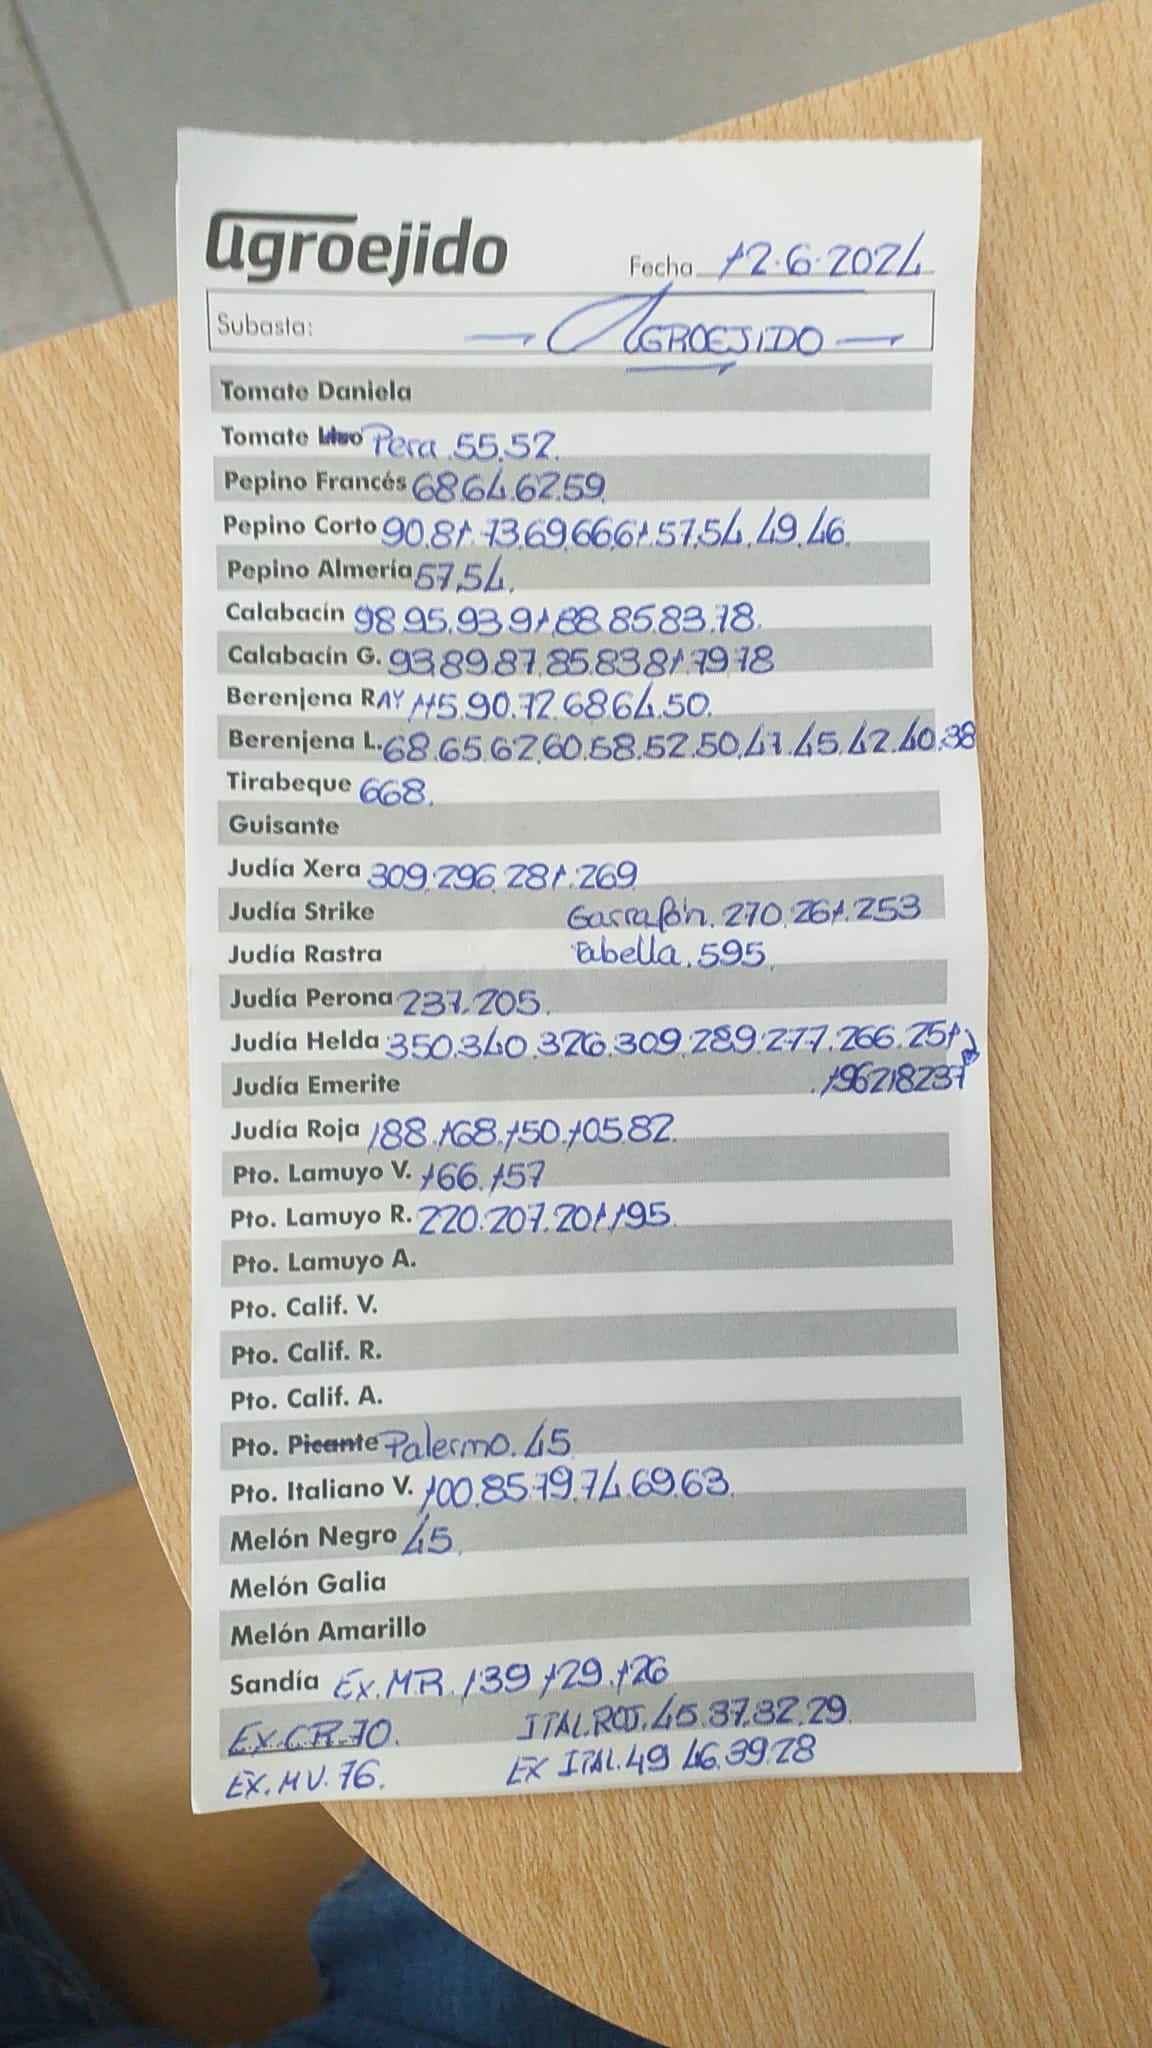 agroejido
Fecha 12.6.2024
Subasta: — AGROEJIDO —
Tomate Daniela
Tomate Liso Pera.55.52.
Pepino Francés 68.64.62.59.
Pepino Corto 90.81.73.69.66.61.57.54.49.46.
Pepino Almería 57.54.
Calabacín 98.95.93.91.88.85.83.78.
Calabacín G. 93.89.87.85.83.81.79.78
Berenjena RAY 115.90.72.68.64.50.
Berenjena L. 68.65.62.60.58.52.50.47.45.42.40.38
Tirabeque 668.
Guisante
Judía Xera 309.296.281.269
Judía Strike Garrafón.270.261.253
Judía Rastra Tabella.595.
Judía Perona 237.205.
Judía Helda 350.340.326.309.289.277.266.251
Judía Emerite .196218237
Judía Roja 188.168.150.105.82.
Pto. Lamuyo V. 166.157
Pto. Lamuyo R. 220.207.201.195.
Pto. Lamuyo A.
Pto. Calif. V.
Pto. Calif. R.
Pto. Calif. A.
Pto. Picante Palermo.45
Pto. Italiano V. 100.85.79.74.69.63.
Melón Negro 45.
Melón Galia
Melón Amarillo
Sandía Ex.MR.139.129.126
EX.CR.70. ITAL.ROJ.45.37.32.29.
EX.MV.76. EX ITAL.49.46.39.28